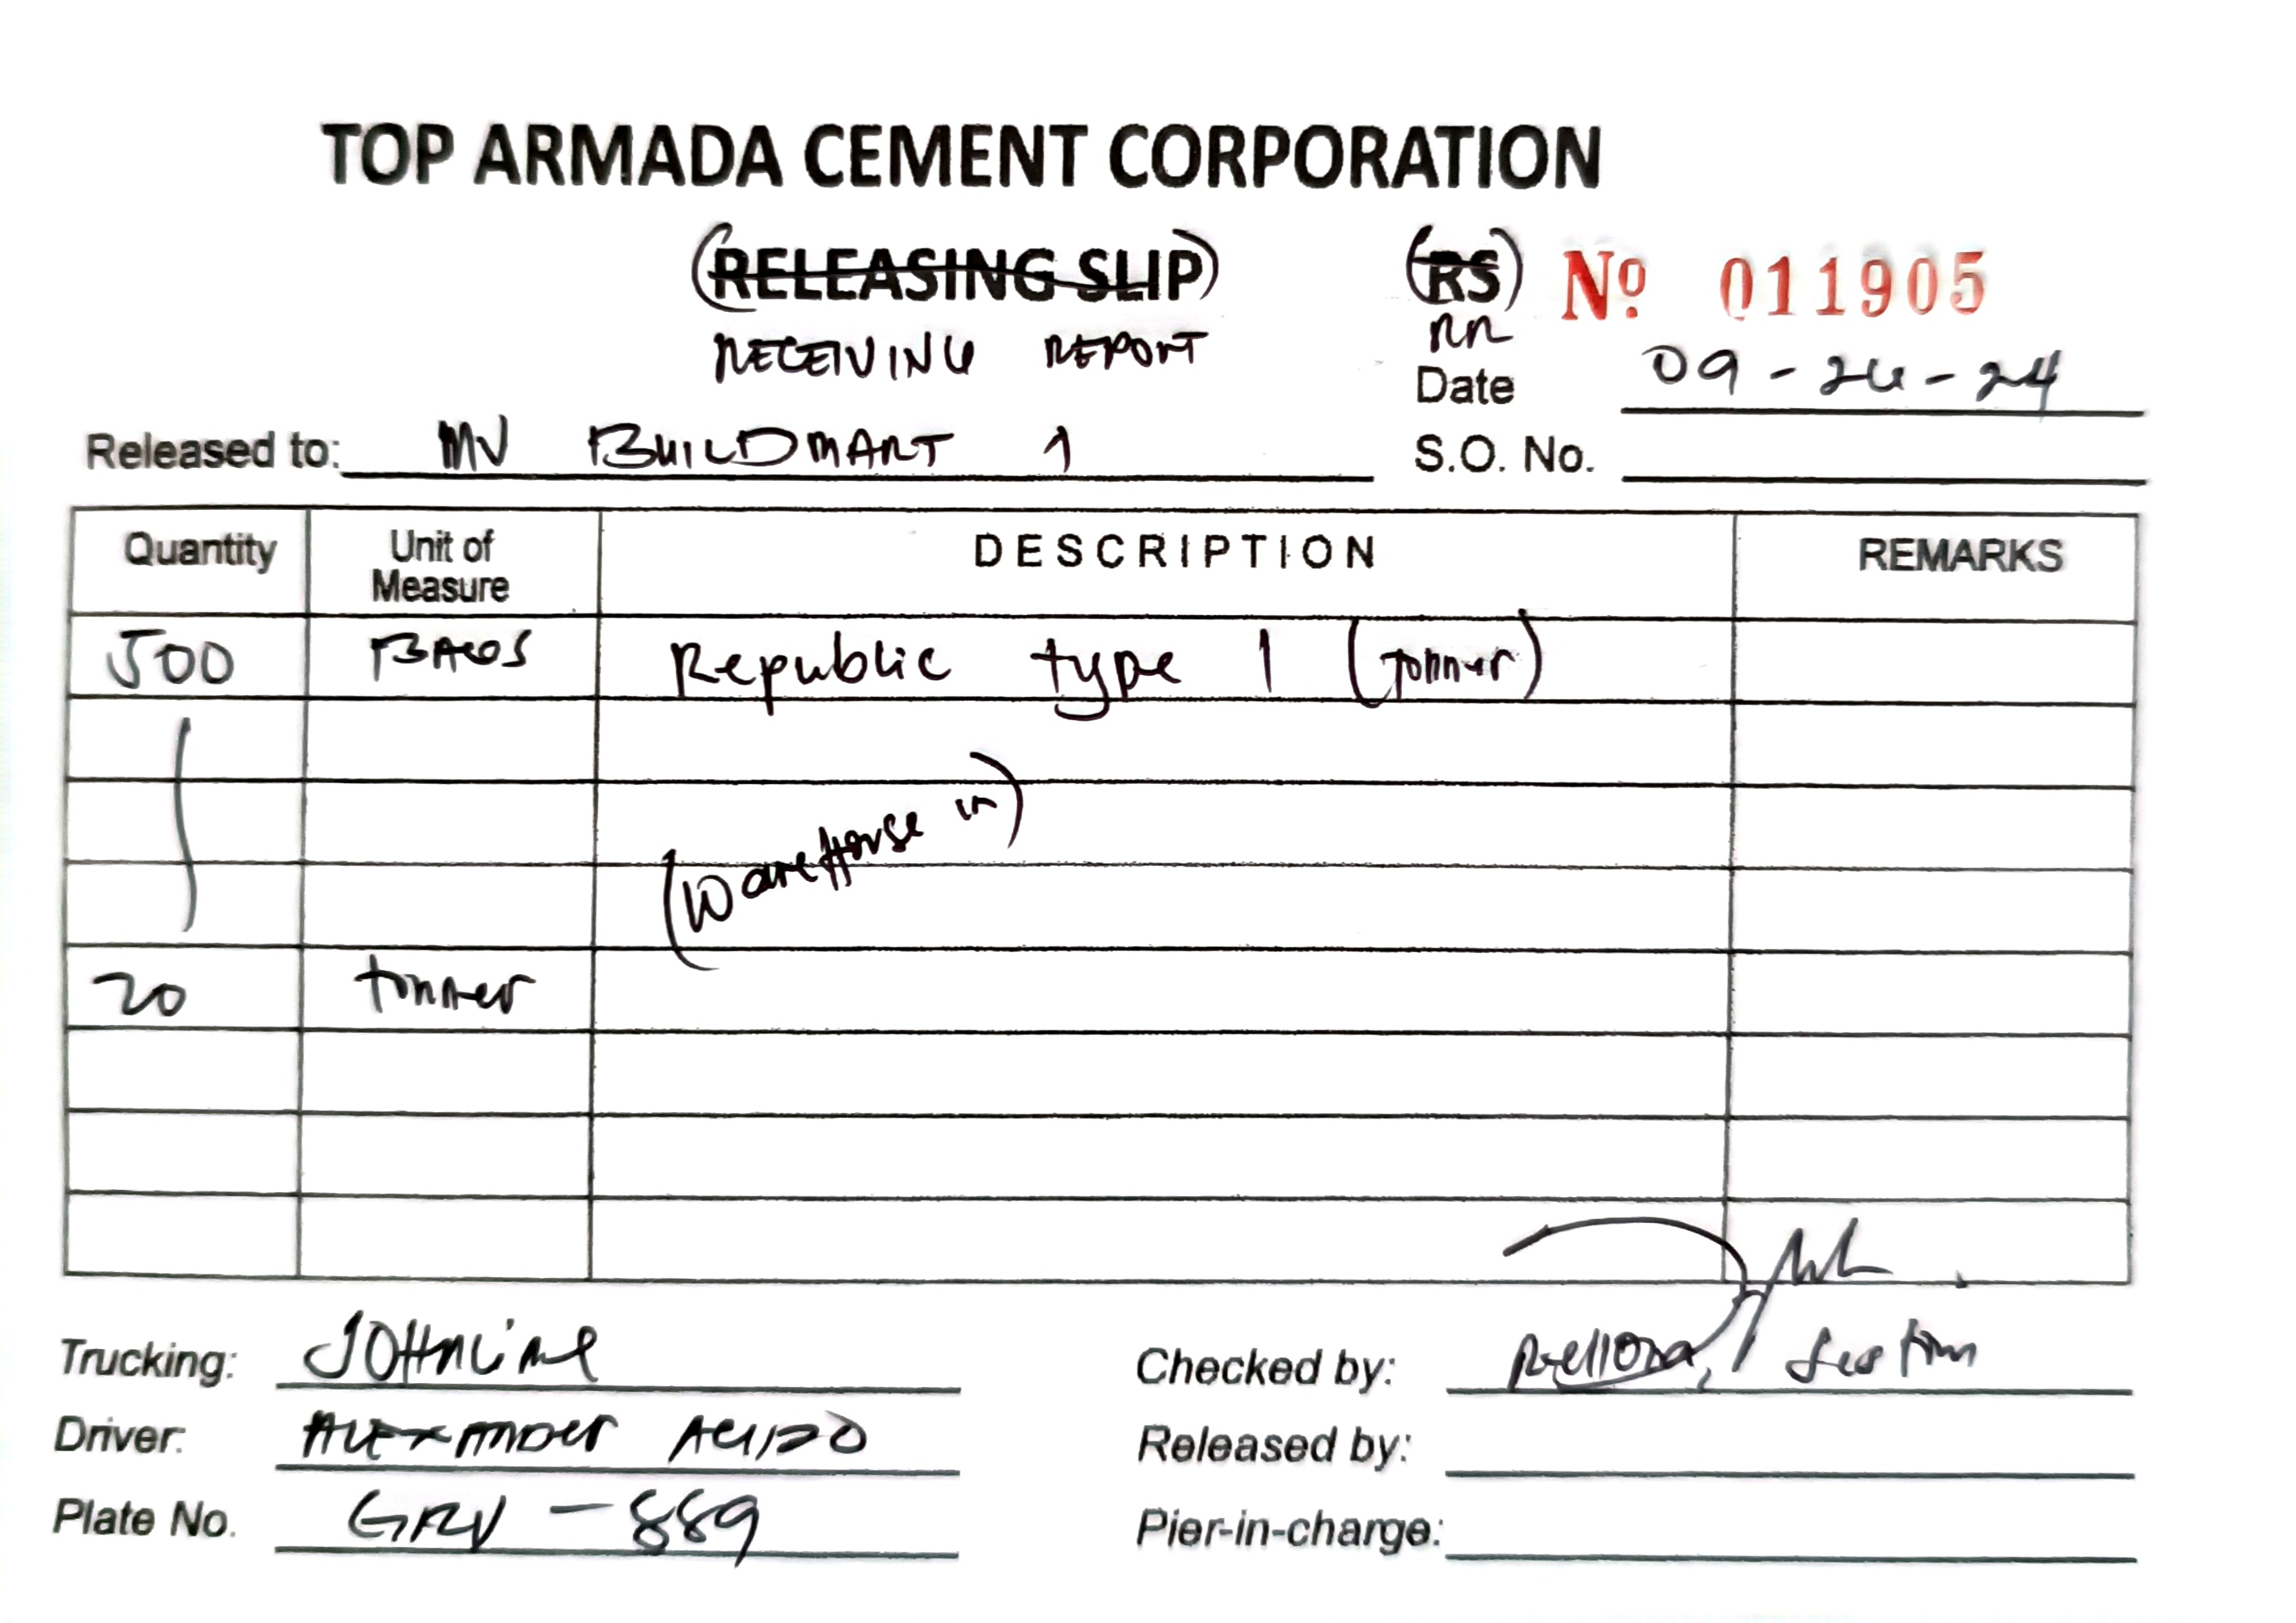 TOP ARMADA CEMENT CORPORATION
(RELEASING SLIP) (RS) Nº 011905
RECEIVING REPORT RR
Date 09-26-24
Released to: MV BUILDMART 1 S.O. No.
Quantity Unit of Measure DESCRIPTION REMARKS
500 BAGS Republic type 1 (Tonner)
(WareHouse in)
20 tonner
Trucking: JOHNLINE Checked by:
Driver: ALEXANDER ACIDO Released by:
Plate No. GRV-889 Pier-in-charge: